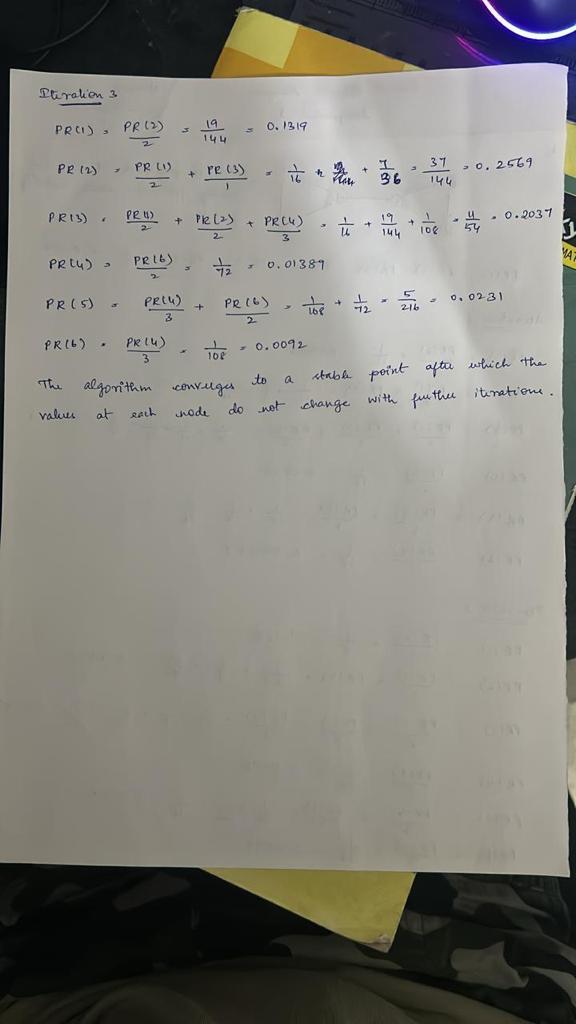 Iteration 3
PR(1) = PR(2)/2 = 19/144 = 0.1319
PR(2) = PR(1)/2 + PR(3)/1 = 1/16 + 7/36 = 37/144 = 0.2569
PR(3) = PR(1)/2 + PR(2)/2 + PR(4)/3 = 1/16 + 19/144 + 1/108 = 11/54 = 0.2037
PR(4) = PR(6)/2 = 1/72 = 0.01389
PR(5) = PR(4)/3 + PR(6)/2 = 1/108 + 1/72 = 5/216 = 0.0231
PR(6) = PR(4)/3 = 1/108 = 0.0092
The algorithm converges to a stable point after which the
values at each node do not change with further iterations.